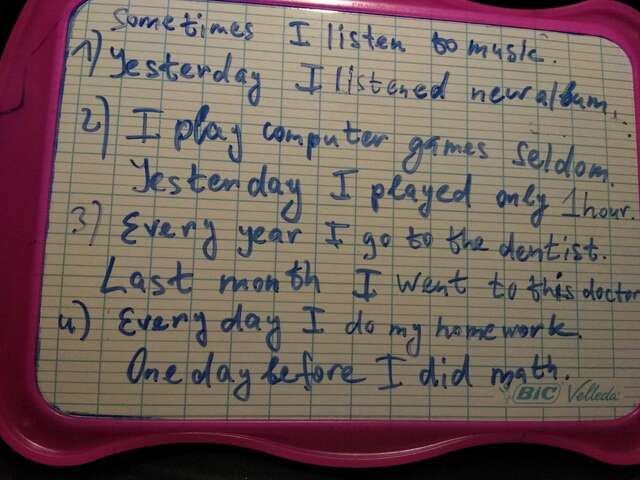 Sometimes I listen to music.
1) Yesterday I listened new album.
2) I play computer games seldom.
Yesterday I played only 1 hour.
3) Every year I go to the dentist.
Last month I went to this doctor
4) Every day I do my homework.
One day before I did math.
BIC Velleda